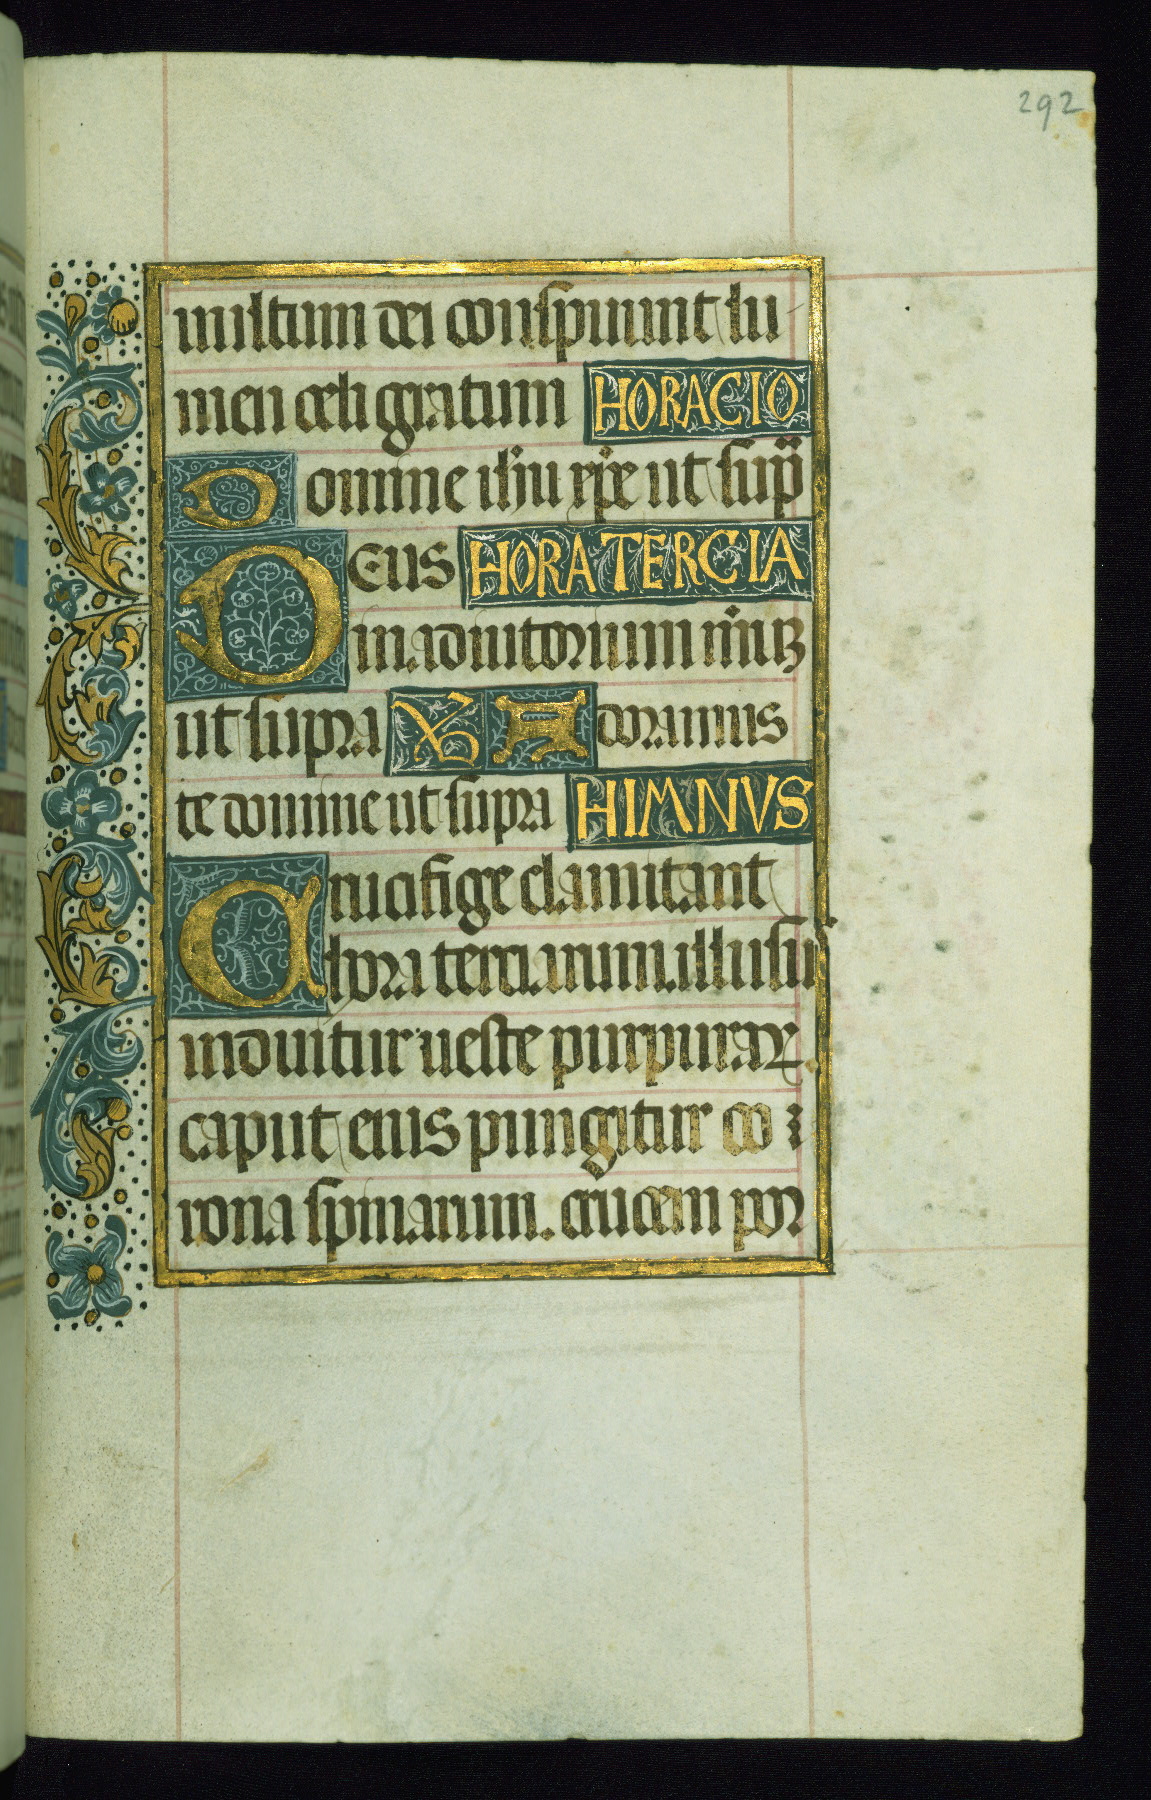 292
uultum dei conspuunt lu
men celi gratum HORACIO
Domine ihu xpe ut sup
Deus HORA TERCIA
in adiutorium
ut supra Adoramus
te domine ut supra HIMNVS
Crucifige clamitant
hora terciarum illusus
induitur ueste purpurar
caput eius pungitur co
rona spinarum. crucem por